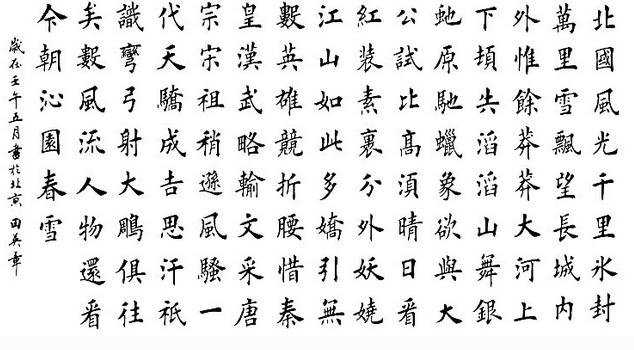 北國風光千里氷封
萬里雪飄望長城內
外惟餘莽莽大河上
下頓失滔滔山舞銀
虵原馳蠟象欲與大
公試比高須晴日看
紅裝素裹分外妖嬈
江山如此多嬌引無
數英雄競折腰惜秦
皇漢武略輸文采唐
宗宋祖稍遜風騷一
代天驕成吉思汗祇
識彎弓射大鵰俱往
矣數風流人物還看
今朝沁園春雪
歲在壬午五月書於北京田英章